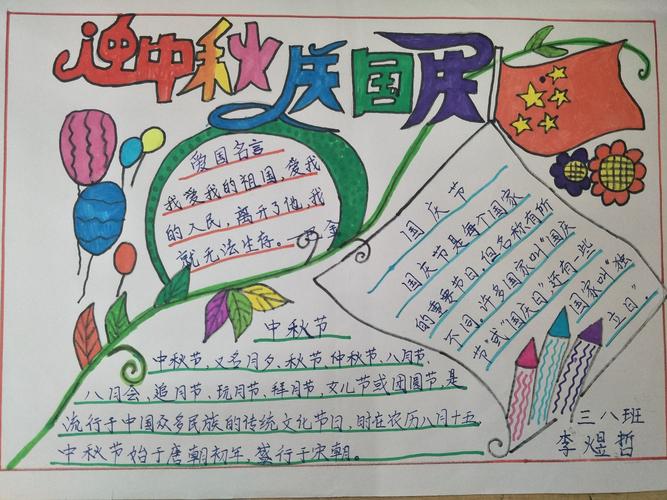 迎中秋 庆国庆
爱国名言
我爱我的祖国，爱我
的人民，离开了他，我
就无法生存。——巴金
国庆节
国庆节是每个国家
的重要节日，但名称有所
不同。许多国家叫“国庆
节”或“国庆日”，还有一些
国家叫“独
立日”。
中秋节
中秋节，又名月夕、秋节、仲秋节、八月节、
八月会、追月节、玩月节、拜月节、女儿节或团圆节，是
流行于中国众多民族的传统文化节日，时在农历八月十五。
中秋节始于唐朝初年，盛行于宋朝。
三八班
李煜哲